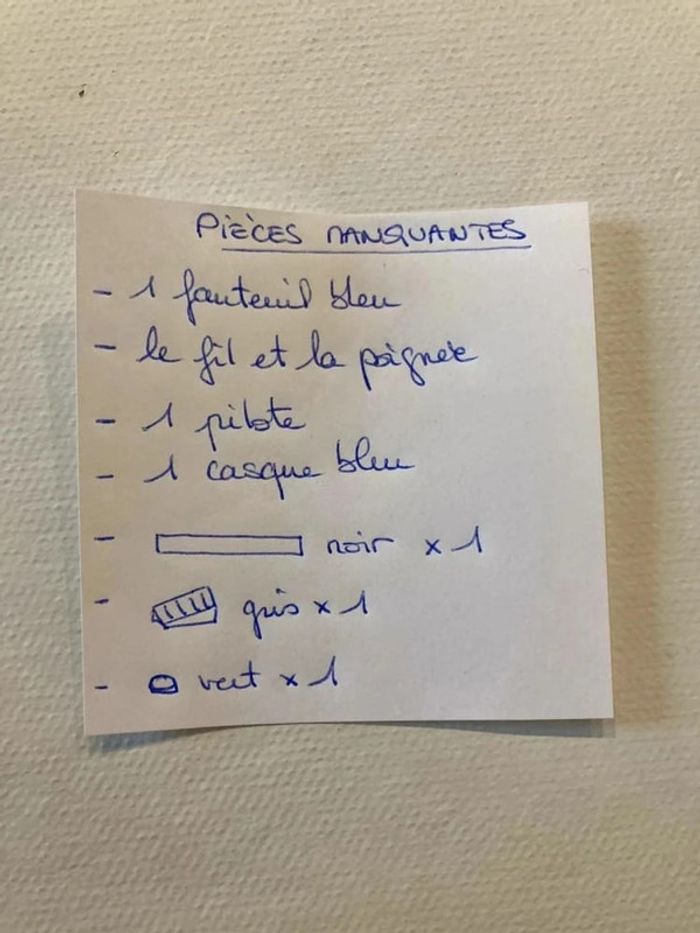 PIÈCES MANQUANTES
- 1 fauteuil bleu
- le fil et la poignée
- 1 pilote
- 1 casque bleu
- noir x 1
- gris x 1
- vert x 1